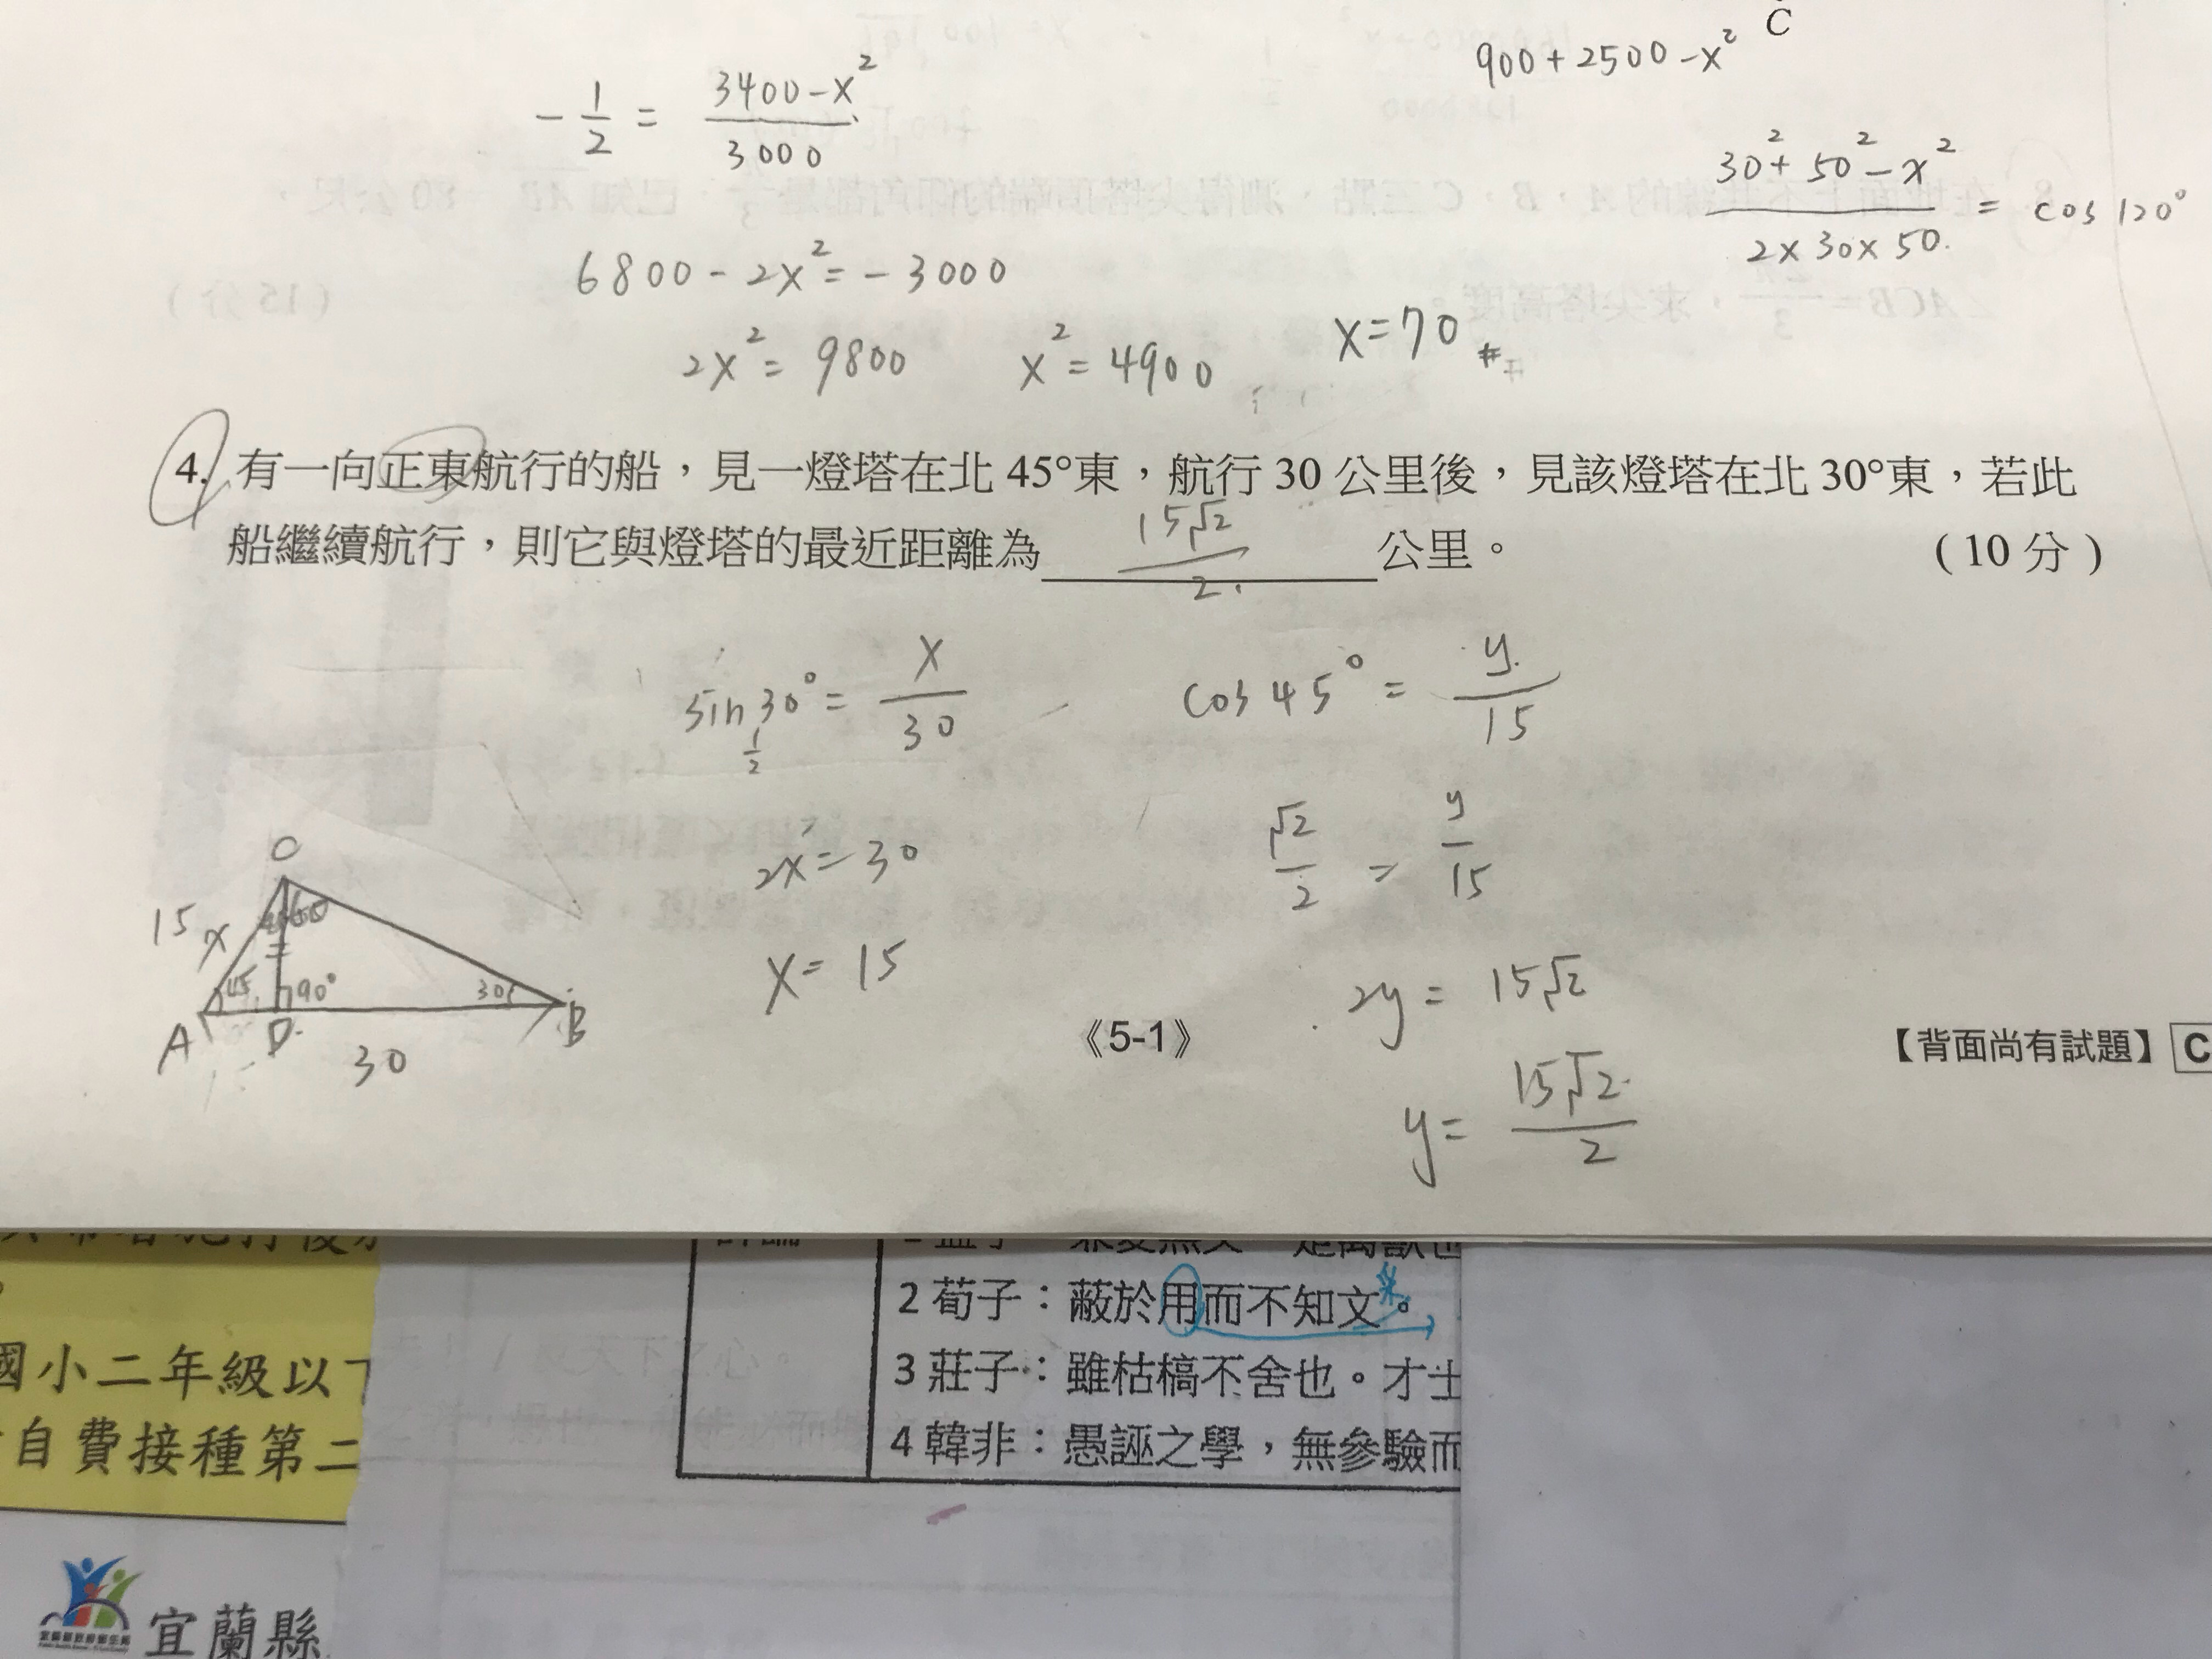 C
900+2500-x²
-1/2 = (3400-x²)/3000
(30²+50²-x²)/(2×30×50) = cos120°
6800-2x²=-3000
2x²=9800 x²=4900 x=70 #
4. 有一向正東航行的船，見一燈塔在北45°東，航行30公里後，見該燈塔在北30°東，若此
船繼續航行，則它與燈塔的最近距離為 15√2/2 公里。 (10分)
sin30°= x/30 cos45°= y/15
1/2
2x=30 √2/2 = y/15
x=15 2y=15√2
y= 15√2/2
C
15 x
45 90° 30
A D B
30
《5-1》 【背面尚有試題】 C
2 荀子：蔽於用而不知文。
3 莊子：雖枯槁不舍也。才士
4 韓非：愚誣之學，無參驗而
國小二年級以下
自費接種第二
宜蘭縣